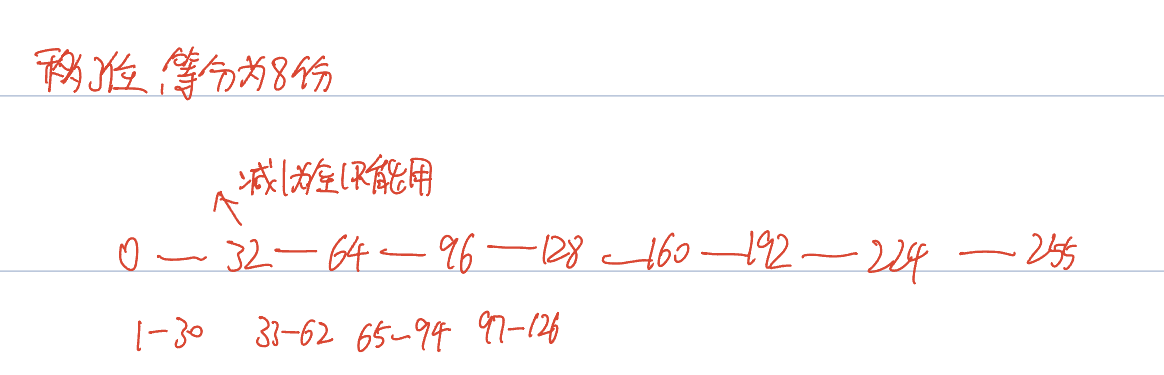 移3位,等分为8份
减1为全1不能用
0—32—64—96—128—160—192—224—255
1-30 33-62 65-94 97-126